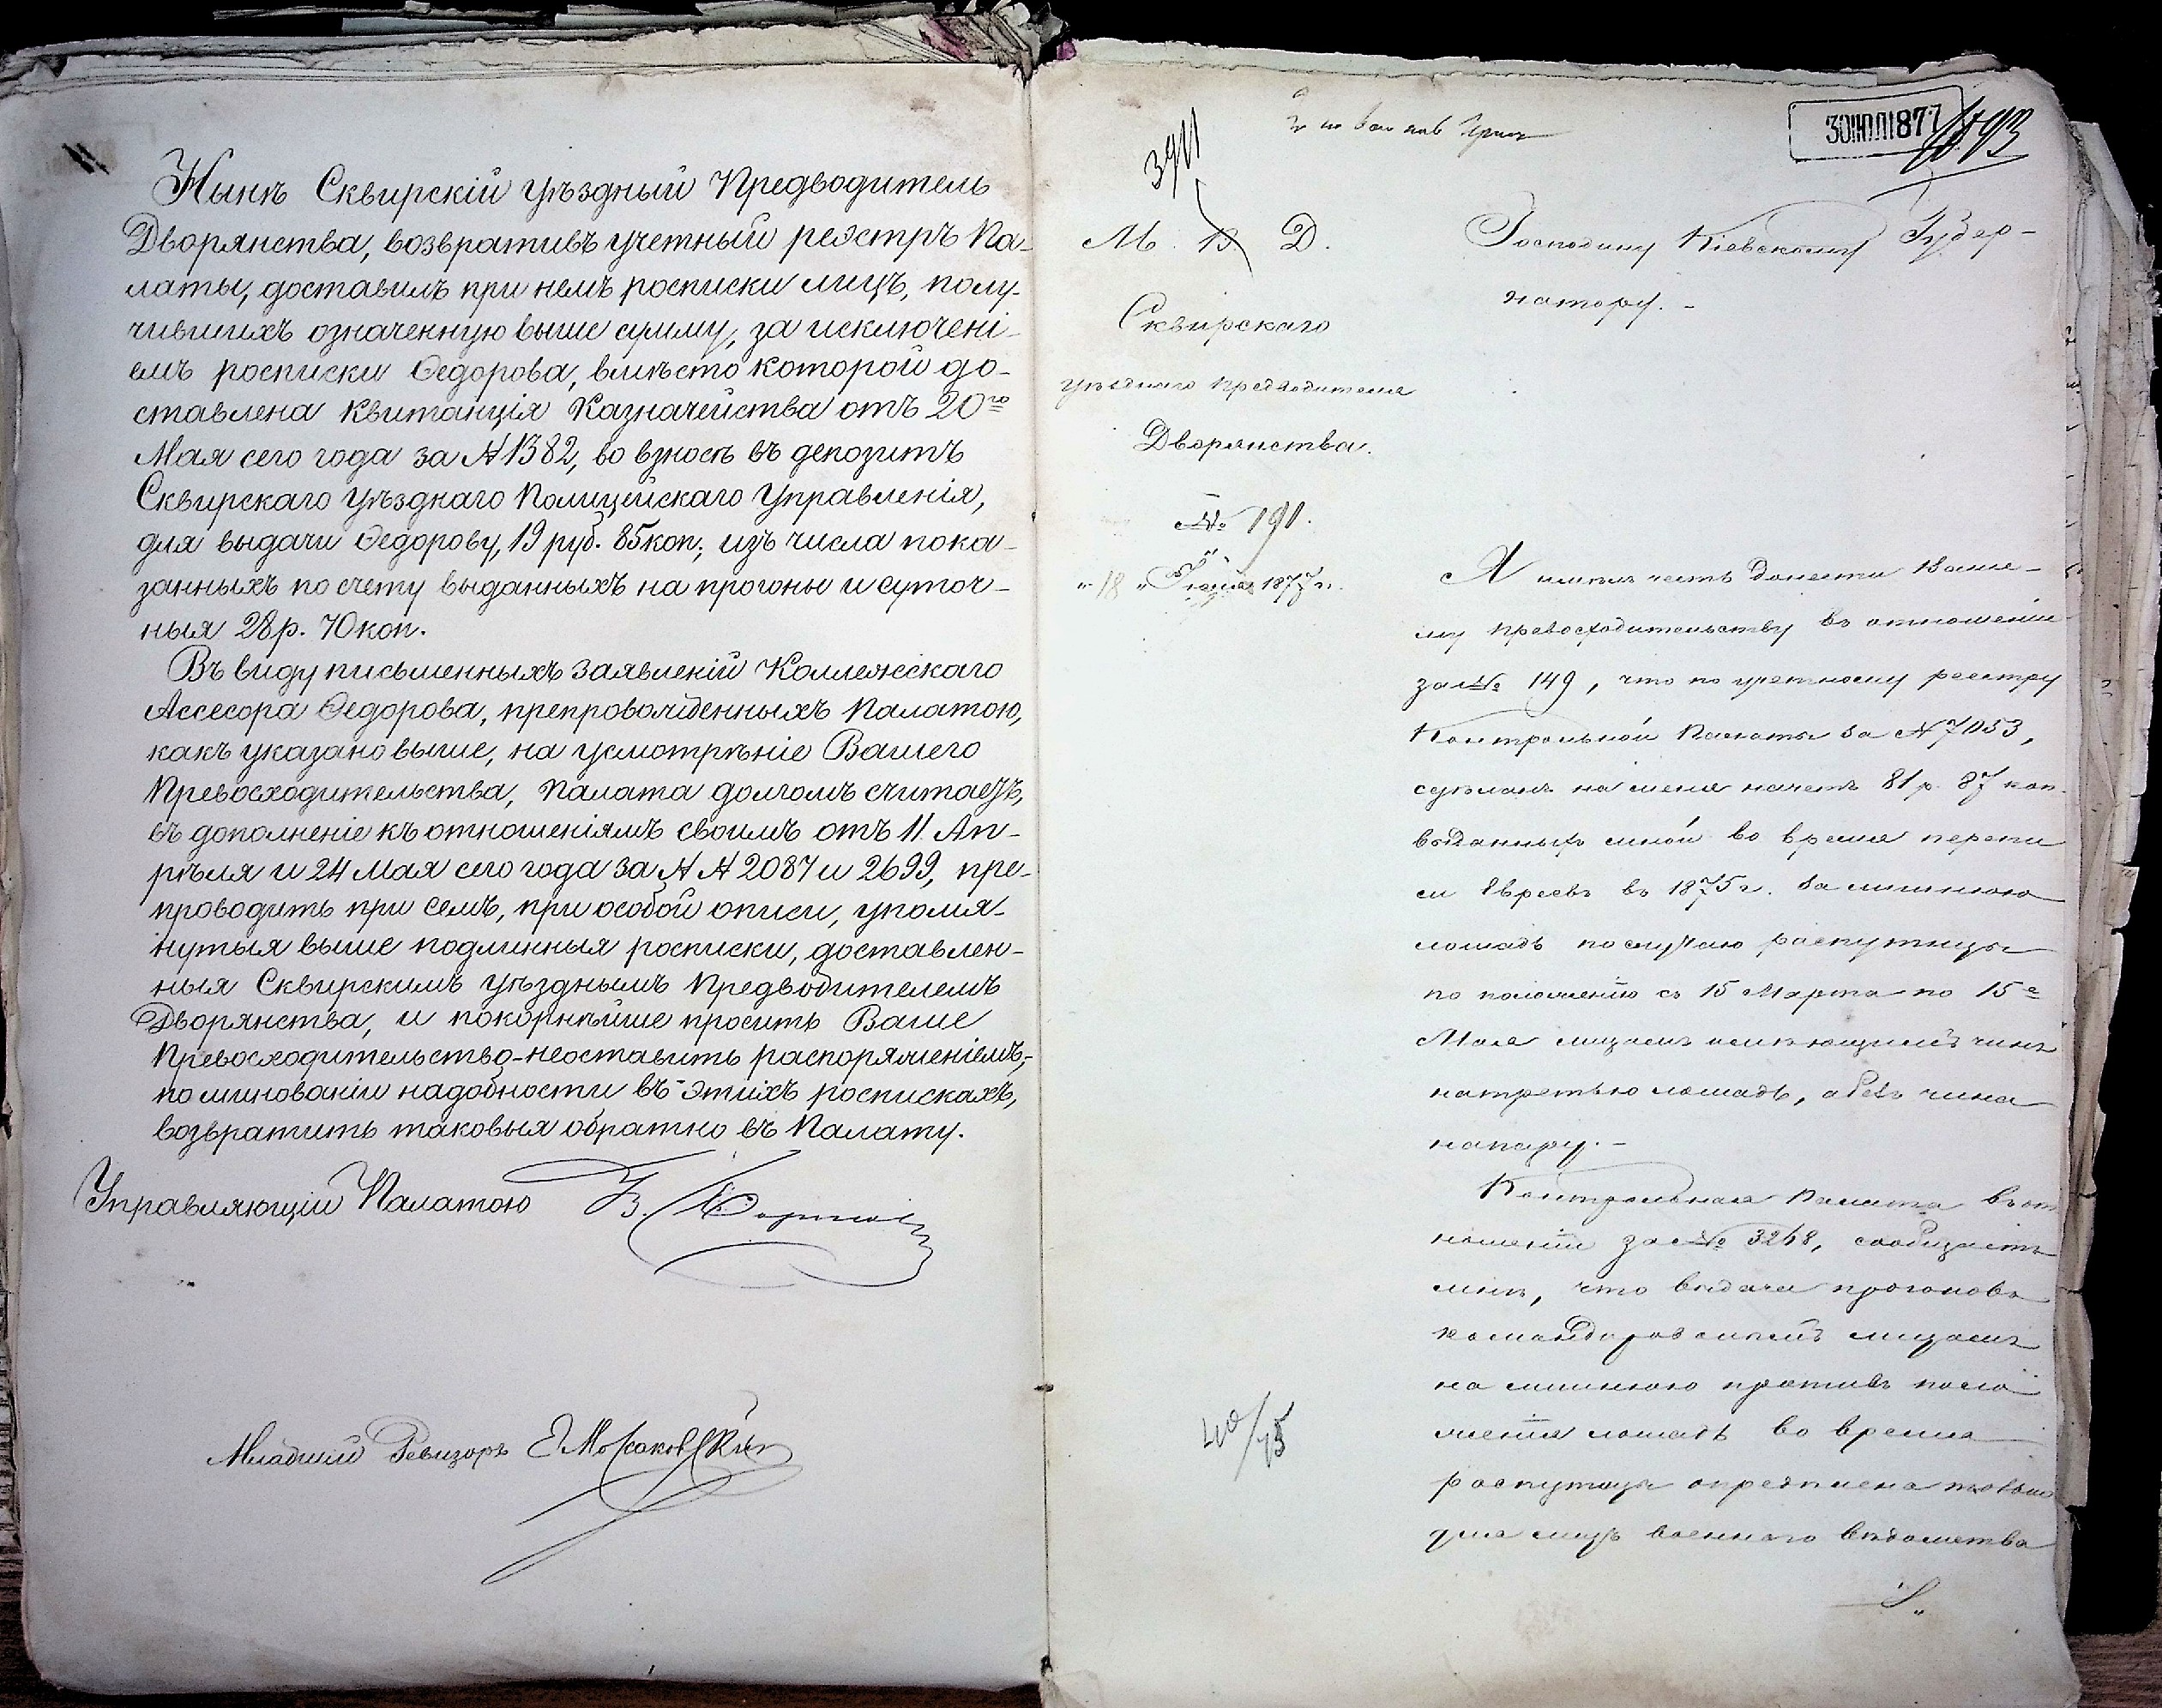 Нынѣ Сквирскій Уѣздный Предводитель
Дворянства, возвративъ учетный реэстръ Па-
латы, доставилъ при немъ росписки лицъ, полу-
чившихъ означенную выше сумму, за исключені-
емъ росписки Ѳедорова, вмѣсто которой до-
ставлена квитанція Казначейства отъ 20го
Мая сего года за № 1382, во взносѣ въ депозитъ
Сквирскаго Уѣзднаго Полицейскаго Управленія,
для выдачи Ѳедорову, 19 руб. 85 коп; изъ числа пока-
занныхъ по счету выданныхъ на прогоны и суточ-
ныя 28 р. 70 коп.
Въ виду письменныхъ заявленій Коллежскаго
Ассесора Ѳедорова, препровожденныхъ Палатою,
какъ указано выше, на усмотрѣніе Вашего
Превосходительства, Палата долгомъ считаетъ,
въ дополненіе къ отношеніямъ своимъ отъ 11 Ап-
рѣля и 24 Мая сего года за №№ 2087 и 2699, пре-
проводить при семъ, при особой описи, упомя-
нутыя выше подлинныя росписки, доставлен-
ныя Сквирскимъ Уѣзднымъ Предводителемъ
Дворянства, и покорнѣйше просить Ваше
Превосходительство-неоставить распоряженіемъ,-
по минованіи надобности въ этихъ роспискахъ,
возвратить таковыя обратно въ Палату.
Управляющій Палатою
Младшій Ревизоръ
30 ІЮЛ 1877
3911
М. В. Д.
Сквирскаго
уѣзднаго предводителя
Дворянства.
№ 191.
"18" Іюля 1877 г.
40/75
Господину Кіевскому Губер-
натору. -
Я имѣлъ честь донести Ваше-
му превосходительству въ отношеніи
за № 149, что по учетному реестру
Контрольной Палаты за № 7053,
сдѣланъ на меня начетъ 81 р. 87 коп.
выданныхъ мной во время перепи
си Евреевъ въ 1875 г. за лишнюю
лошадь по случаю распутицы
по положенію съ 15 Марта по 15е
Мая лицамъ имѣющимъ чинъ
на третью лошадь, а безъ чина
на пару. -
Контрольная Палата въ от
ношеніи за № 3268, сообщаетъ
мнѣ, что выдача прогоновъ
командированнымъ лицамъ
на лишнюю противъ поло
женія лошадь во время
распутицы опредѣлена только
для лицъ военнаго вѣдомства